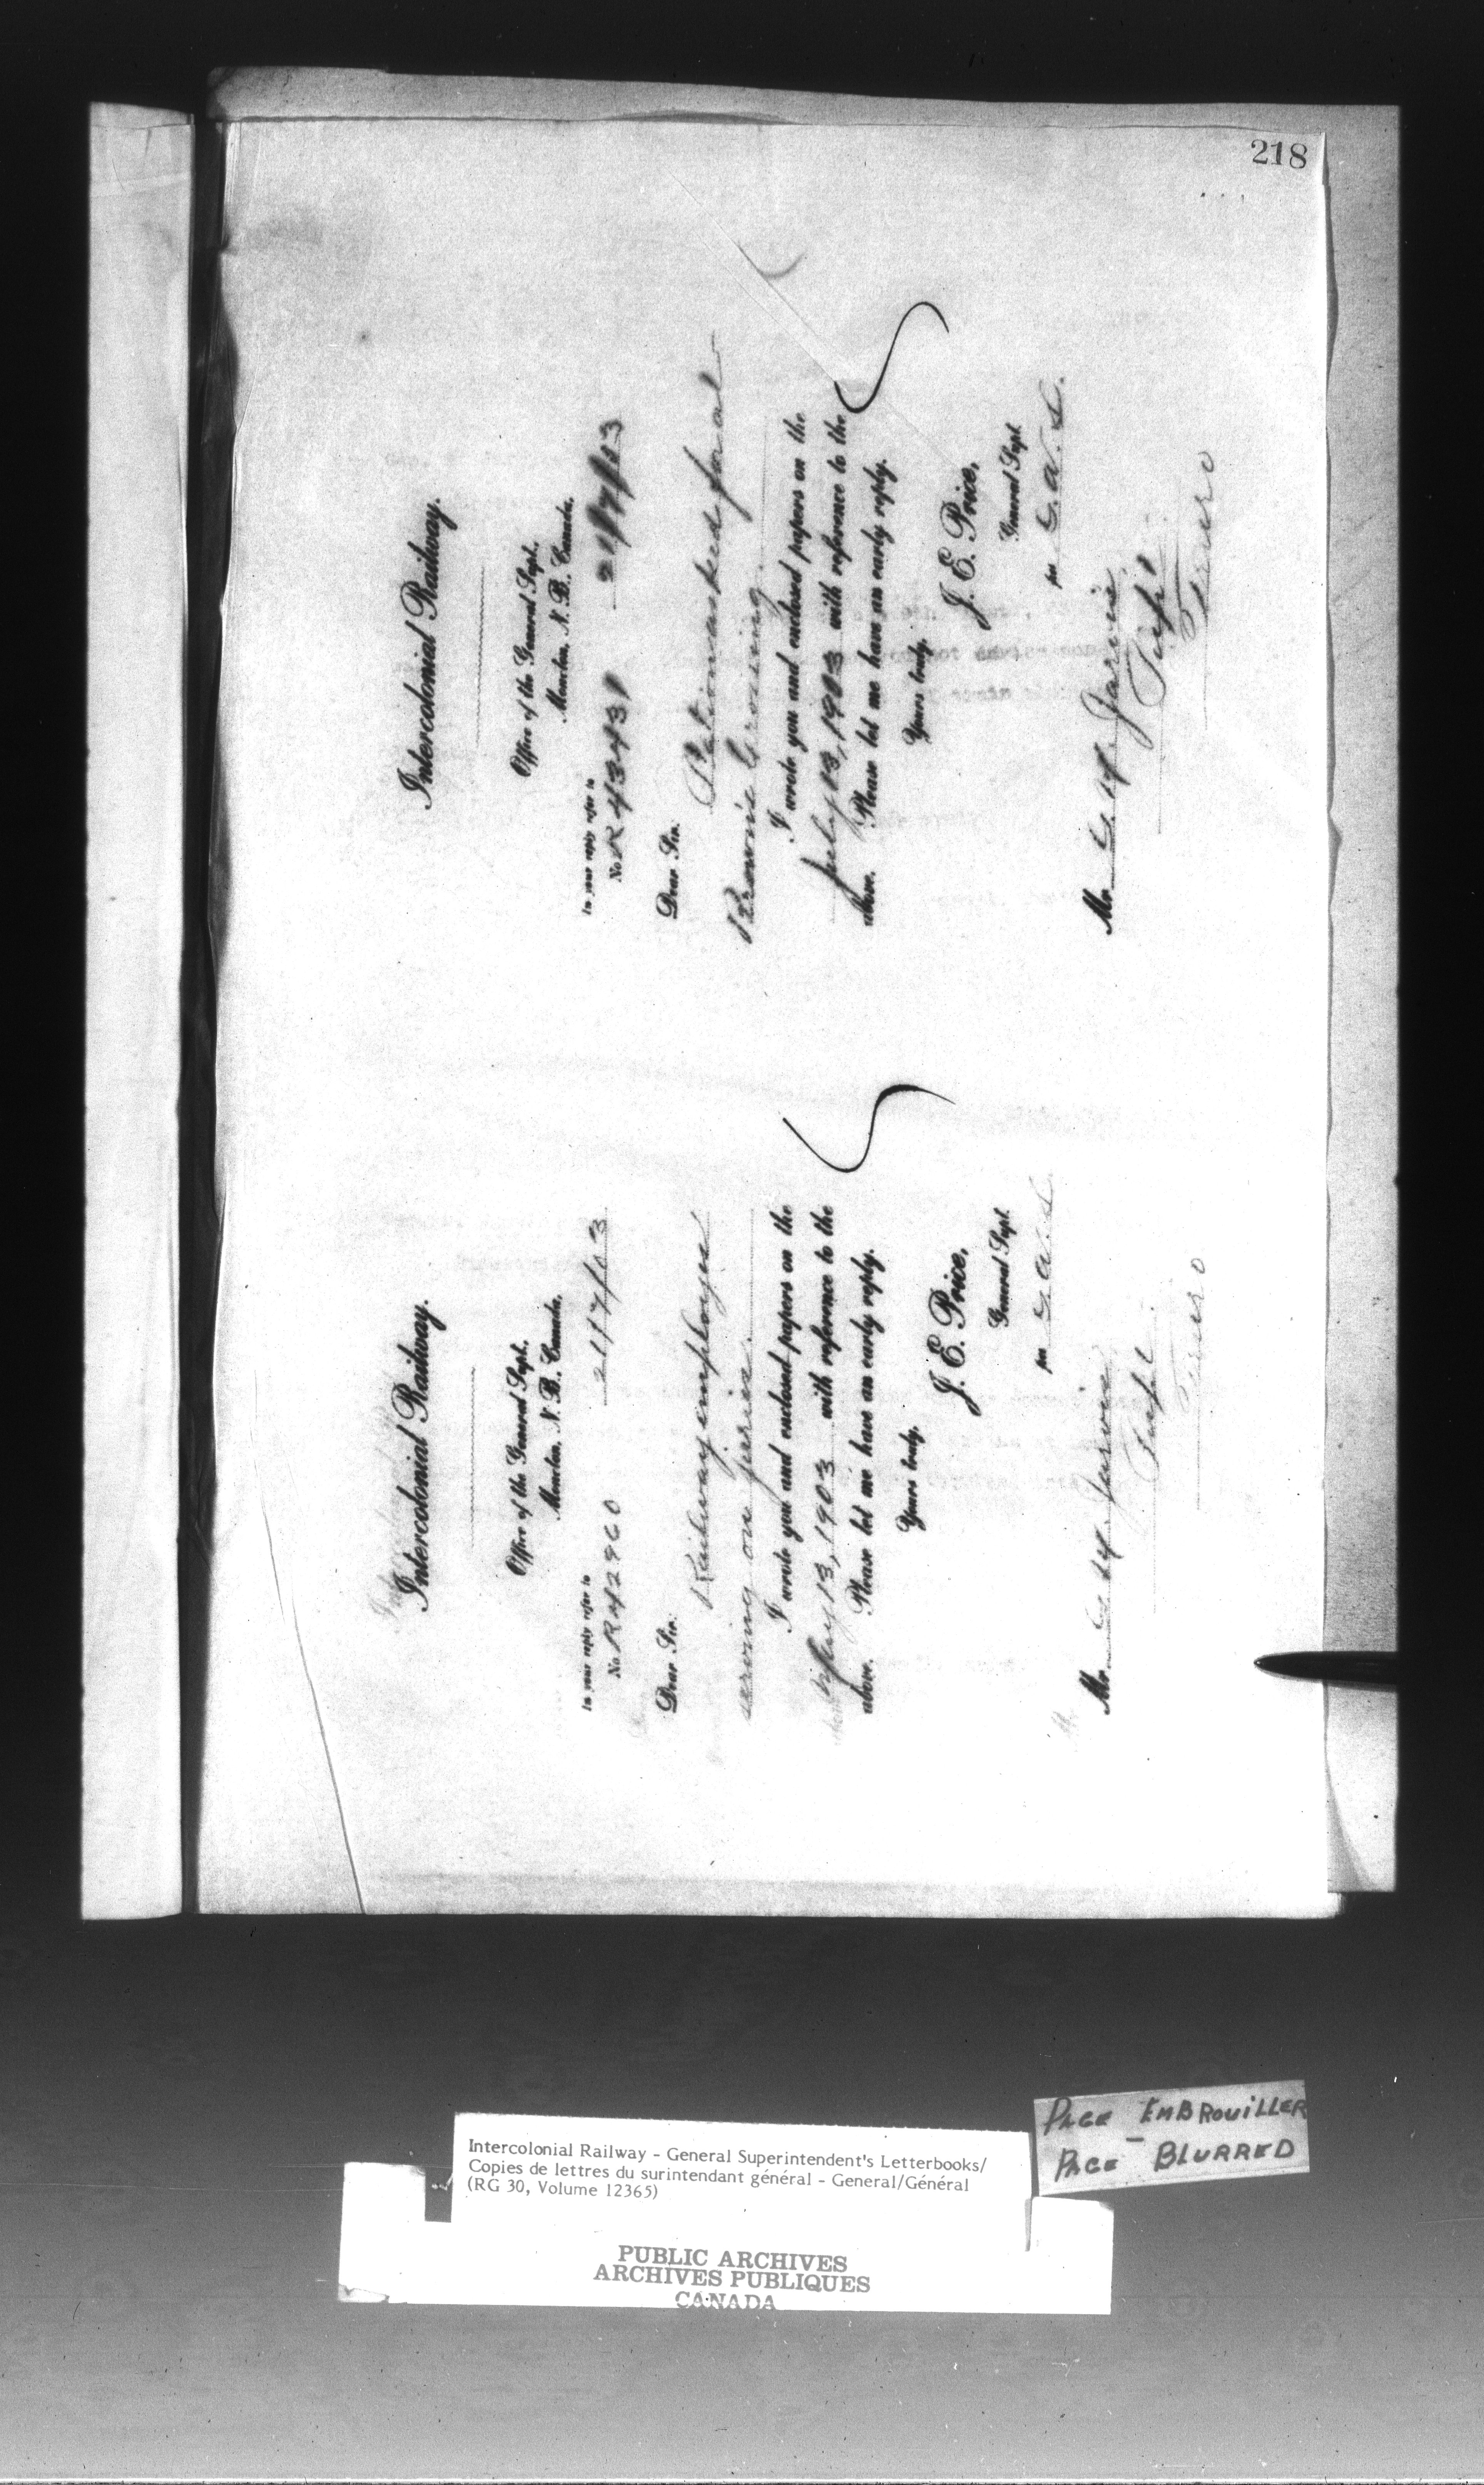 218
Intercolonial Railway.
Office of the General Supt.
Moncton, N. B., Canada.
In your reply refer to
No R 42960
21/7/03
Dear Sir.
Railway employees
serving on juries.
I wrote you and enclosed papers on the
July 13, 1903 with reference to the
above. Please let me have an early reply.
Yours truly,
J. E. Price,
General Supt.
per G. A. S.
Mr. G. M. Jarvis.
Supt.
Truro
Intercolonial Railway.
Office of the General Supt.
Moncton, N. B., Canada.
In your reply refer to
No R 4343
21/7/03
Dear Sir.
Station asked for at
Crossing.
I wrote you and enclosed papers on the
July 13, 1903 with reference to the
above. Please let me have an early reply.
Yours truly,
J. E. Price,
General Supt.
per G. A. S.
Mr. G. M. Jarvis.
Supt.
Truro
PAGE EMBROUILLER
PAGE BLURRED
Intercolonial Railway - General Superintendent's Letterbooks/
Copies de lettres du surintendant général - General/Général
(RG 30, Volume 12365)
PUBLIC ARCHIVES
ARCHIVES PUBLIQUES
CANADA